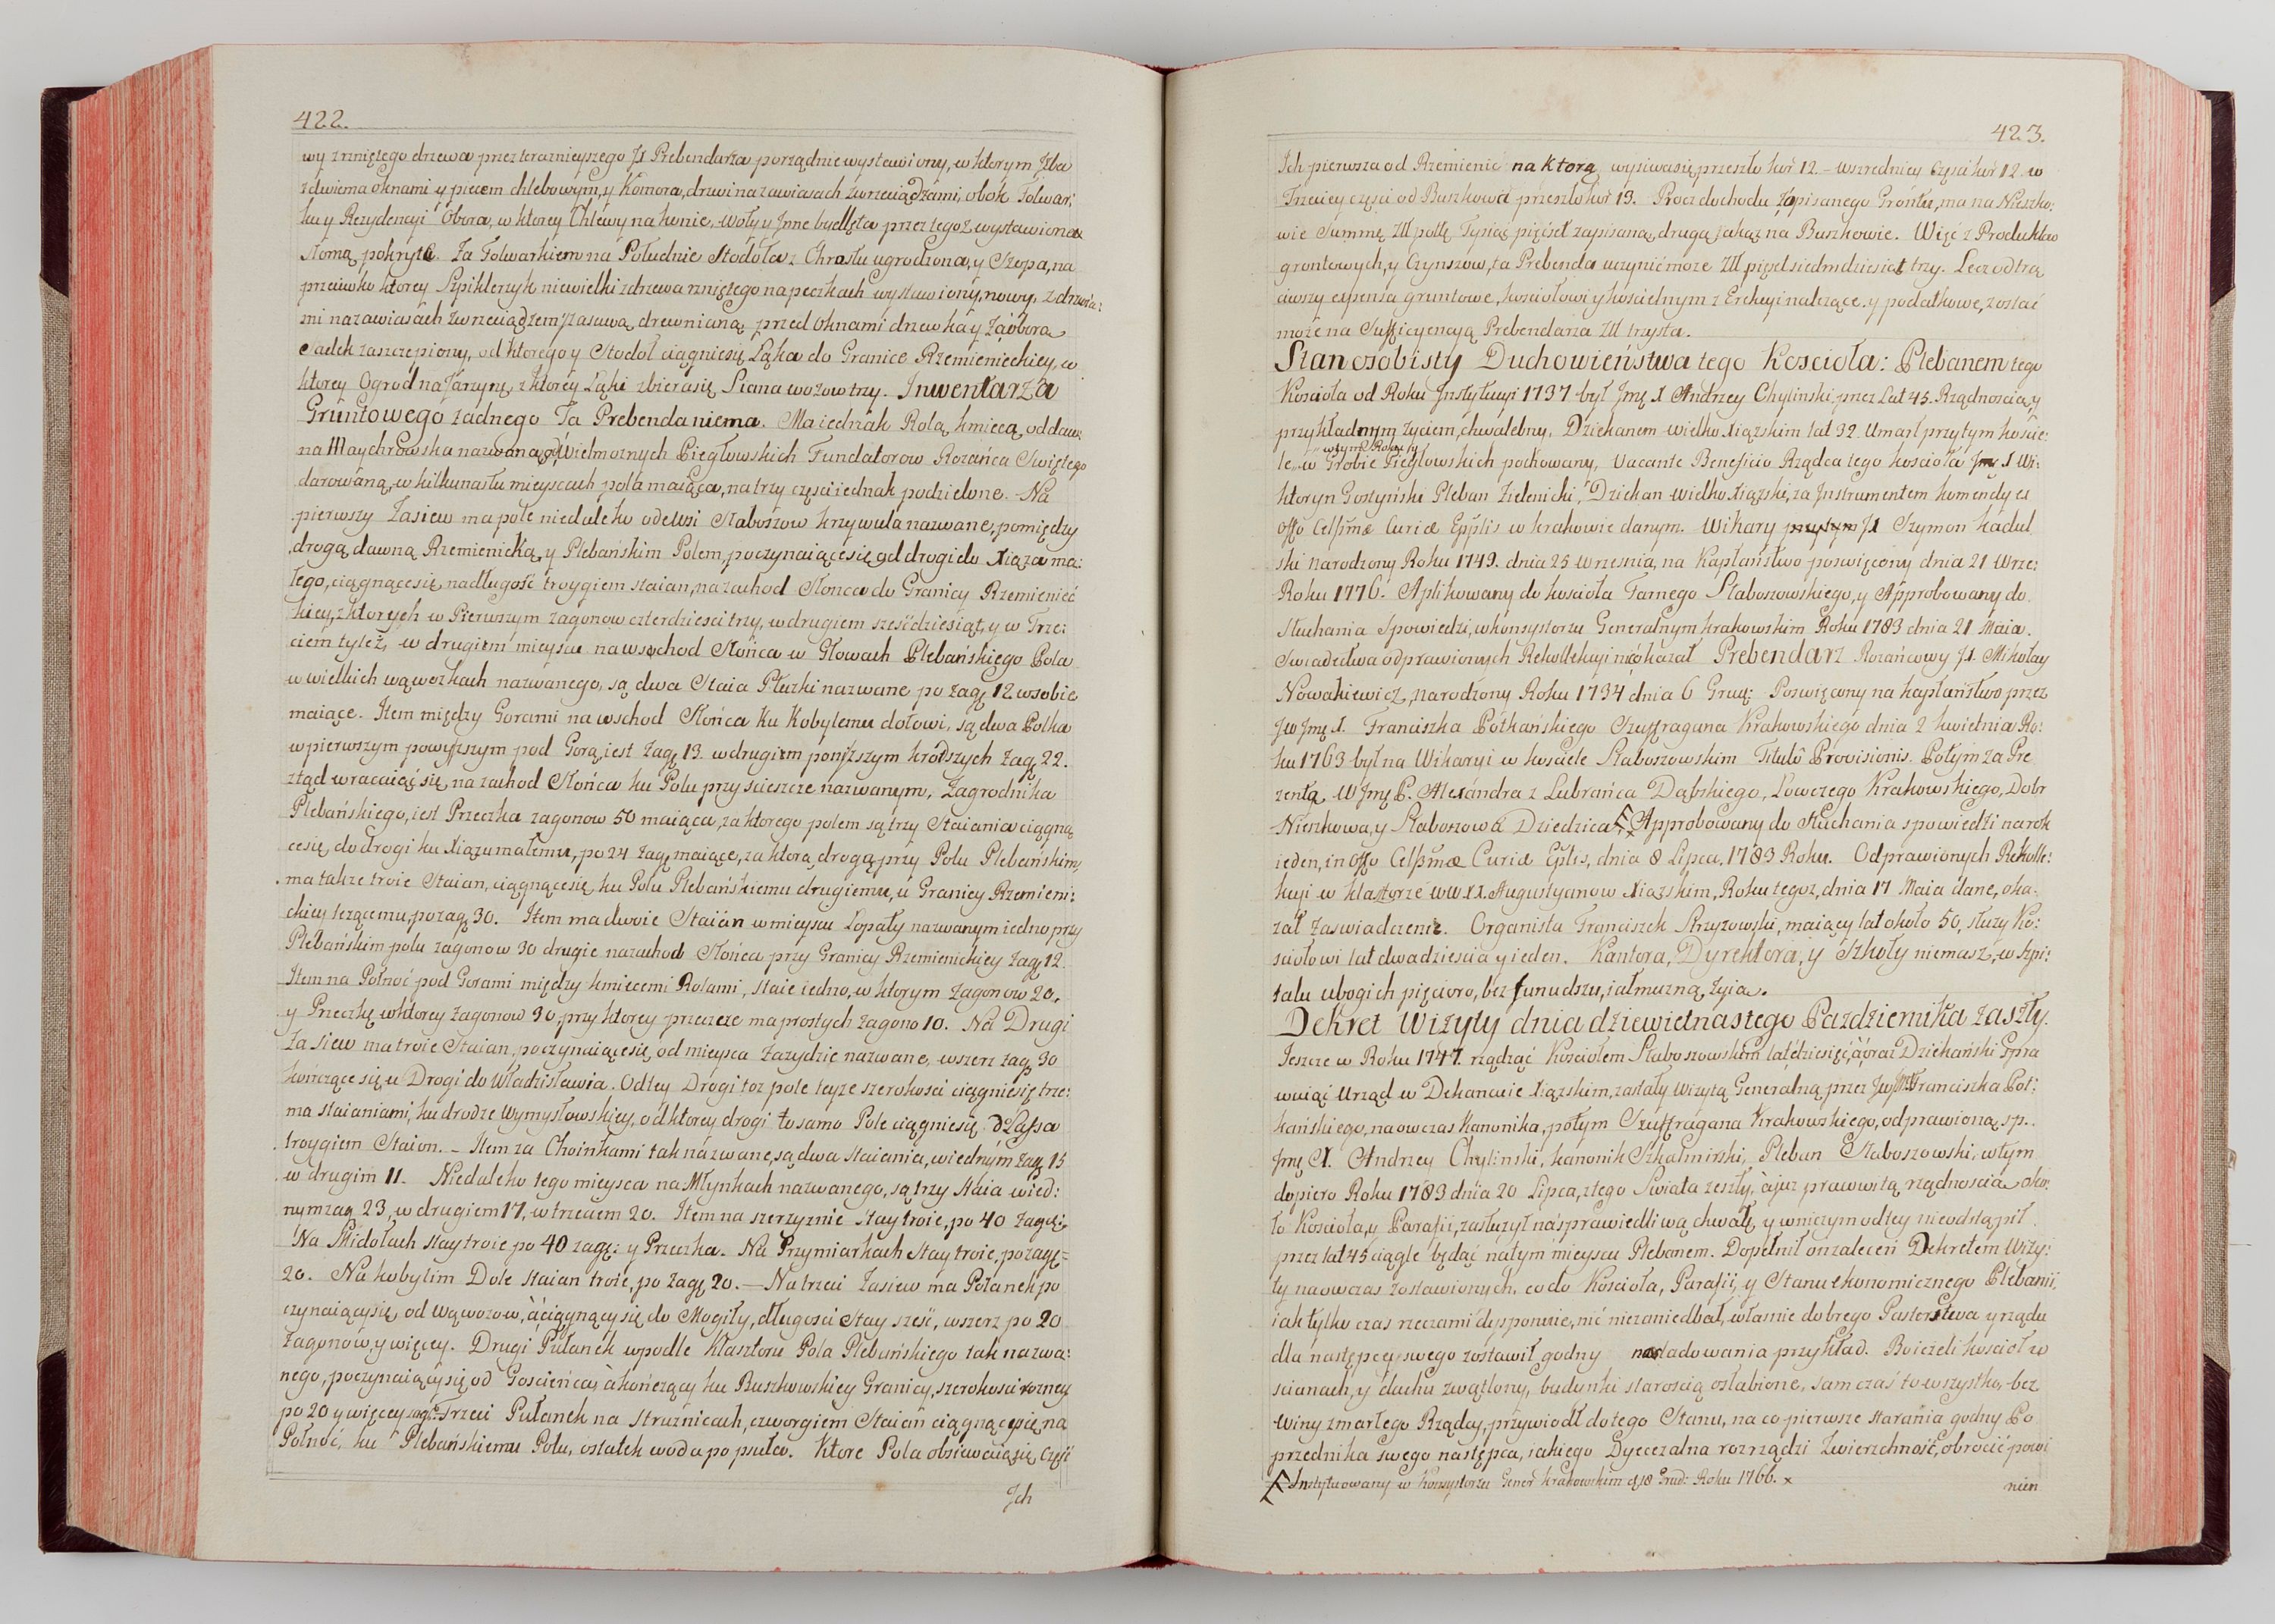 422.
wy z rzniętego drzewa przez teraznieyszego JX Prebendarza porządnie wystawiony, w ktorym Jzba
z dwiema oknami y piecem chlebowym, y Komora, drzwi na zawiasach z wrzeciądzami, obok Folwar:
ku y Rezydencyi Obora, w ktorey Chlewy na konie, woły y Jnne bydlęta przez tegoż wystawiona
słomą pokryta. Za Folwarkiem na Południe Stodoła z Chrostu ugrodzona, y Szopa, na
przeciwko ktorey Szpiklerzyk niewielki z drzewa rzniętego na peczkach wystawiony, nowy, z drzwia:
mi na zawiasach z wrzeciądzem, zasuwą drewnianą, przed oknami drzewka y za obora
Sadek zaszczepiony, od ktorego y Stodoł ciągnie się Łąka do Granice Rzemienieckiey, w
ktorey Ogrod na Jarzynę, z ktorey Łąki zbiera się Siana wozow trzy. Jnwentarza
Gruntowego żadnego Ta Prebenda niema. Ma iednak Rolą kmiecą oddaw:
na Maychrowska nazwaną, od Wielmoznych Giegłowskich Fundatorow Rozańca Swiętego
darowaną, w kilkunastu mieyscach pola maiąca, na trzy części iednak podzielone. Na
pierwszy Zasiew ma pole niedaleko odewsi Słaboszow krzywula nazwane, pomiędzy
drogą dawną Rzemienicką, y Plebańskim Polem, poczynaiące się od drogi do Xiąza ma:
łego, ciągnące się nadługość troygiem staian, na zachod Słonca do Granicy Rzemienieć
kiey, z ktorych w Pierwszym zagonow czterdziesci trzy, w drugiem sześćdziesiąt, y w Trze:
ciem tyleż, w drugiem mieyscu na wschod Słońca w Głowach Plebańskiego Pola
w wielkich wąwozkach nazwanego, są dwa Staia Płuzki nazwane po zag. 12 w sobie
maiące. Jtem między Gorami na wschod Słońca ku Kobylemu dołowi, są dwa Polka
w pierwszym powyższym pod Gorą iest zag. 13. w drugiem poniższym krodszych zag. 22.
ztąd wracaiąć się na zachod Słońca ku Polu przy scieszce nazwanym, Zagrodnika
Plebańskiego, iest Przeczka zagonow 50 maiąca, za ktorego polem są trzy Staiania ciągną
ce się do drogi ku Xiązu małemu, po 24 zag. maiące, za ktorą drogą przy Polu Plebańskim,
ma także troie Staian, ciągnące się ku Polu Plebańskiemu drugiemu, u Granicy Rzemieni:
ckiey leżącemu, po zag. 30. Jtem ma dwoie Staian w mieyscu Łopaty nazwanym iedno przy
Plebańskim polu zagonow 30 drugie na zachod Słońca przy Granicy Rzemienickiey zag. 12.
Jtem na Połnoć pod Gorami między kmiecemi Rolami, staie iedno, w ktorym zagonow 20,
y Przeczkę w ktorey zagonow 30, przy ktorey przeczce ma prostych zagono 10. Na Drugi
Zasiew ma troie Staian, poczynaiące się od mieysca Zazydzie nazwane, w szerz zag. 30
kończące się u Drogi do Władzisławia. Odtey Drogi toz pole teyze szerokosci ciągnie się trze:
ma staianiami, ku drodze Wymysłowskiey, od ktorey drogi to samo Pole ciągnie się d Lassa
troygiem Staion. – Jtem za Choinkami tak nazwane, są dwa staiania, w iednym zag. 15
w drugim 11. Niedaleko tego mieysca na Młynkach nazwanego, są trzy staia w ied:
nym zag. 23, w drugiem 17, w trzeciem 20. Jtem na szerzyznie stay troie, po 40 zagę:
Na Skidołach stay troie po 40 zagę: y Przeczka. Na Przymiarkach Stay troie, po zagę=
20. Na kobylim Dole staian troie, po zagę. 20. – Na trzeci Zasiew ma Połanek po
czynaiący się od wąwozow, à ciągnący się do Mogiły, długosci Stay sześć, w szerz po 20
zagonów, y więcey. Drugi Pułanek wpodle Klasztoru Pola Plebańskiego tak nazwa:
nego, poczynaiący się od Goscieńca, à kończący ku Buszkowskiey Granicy, szerokosci rozney
po 20 y więcey zagę: Trzeci Pułanek na Struznicach, czworgiem Staian ciągnące się na
Połnoć, ku Plebańskiemu Polu, ostatek woda popsuła. Ktore Pola obsiewaią się Część
Jch
423.
Jch pierwsza od Rzemienić na ktorą wysiwa się przeszło kor 12. – w szredniey Części kor 12. w
Trzeciey części od Buszkowa przeszło kor 13. Procz dochodu Zapisanego Grontu, ma na Nieszko:
wie Summę Zll polłę Tysiąc pięćset zapisaną, drugą takąż na Buszkowie. Więć z Produktow
grontowych, y Czynszow, ta Prebenda uczynić moze Zll pięćset siedmdziesiąt trzy. Lecz odtrą
ciwszy expensa gruntowe, kosciołowi y koscielnym z Erekcyi nalezące, y podatkowe, zostać
może na Sufficyencyą Prebendarza Zll trzysta.
Stan osobisty Duchowieństwa tego Koscioła: Plebanem tego
Koscioła od Roku Jnstytucyi 1737 był Jmę X Andrzey Chylinski, przez Lat 45. Rządnoscią, y
przykładnym życiem, chwalebny, Dziekanem Wielko Xiązskim lat 32. Umarł przy tym koście:
w tym Roku y
le, w Grobie Giegłowskich pochowany, Vacante Beneficio Rządca tego koscioła Jmę X Wi:
ktoryn Goszyński Pleban Zielenicki, Dziekan Wielko Xiązski, za Jnstrumentem komendy ex
offo Celssmæ Curiæ Epplis w krakowie danym. Wikary JX Szymon Kadul
ski narodzony Roku 1749. dnia 25 Wrzesnia, na Kapłaństwo poswięcony dnia 21 Wrze:
Roku 1776. Aplikowany do koscioła Farnego Słaboszowskiego, y Approbowany do
słuchania Spowiedzi, w konsystorzu Generalnym krakowskim Roku 1783 dnia 21 Maia.
Swiadectwa odprawionych Rekollekcyi nieokazał Prebendarz Rozańcowy JX. Mikołay
Nowakiewicz, narodzony Roku 1734 dnia 6 Grud: Poswięcony na kapłaństwo przez
JW Jmę X. Franciszka Potkańskiego Szuffragana Krakowskiego dnia 2 kwietnia Ro:
ku 1763 był na Wikaryi w koscіele Słaboszowskim Titulô Provisionis. Potym za Pre
zentą W Jmę P. Alexandra z Lubrańca Dąbskiego, Łowczego Krakowskiego, Dobr
Nieszkowa, y Słaboszowa Dziedzica Approbowany do Słuchania spowiedzi na rok
ieden, in offo Celssmæ Curiæ Eplis, dnia 8 Lipca, 1783 Roku. Odprawionych Rekolle:
kcyi w klasztorze WW XX. Augustyanow Xiązskim, Roku tegoz, dnia 17 Maia dane, oka:
zał Zaswiadczenie. Organista Franciszek Strzyzowski, maiący lat około 50, słuzy Ko:
sciołowi lat dwadziescia y ieden. Kantora, Dyrektora, y Szkoły niemasz, w Szpi:
talu ubogich pięcioro, bez funduszu, iałmuzną, zyia.
Dekret Wizyty dnia dziewietnastego Pazdziernika zaszły.
Jeszcze w Roku 1747. rządząć Kościołem Słaboszowskim lat dziesięć, à oraz Dziekański Spra
wuiąć Urząd w Dekanacie Xiązskim, zastały Wizytą Generalną, przez JW Jmę X Franciszka Pot:
kańskiego, na owczas Kanonika, potym Szuffragana Krakowskiego, odprawioną, sp..
Jmę X. Andrzey Chylinski, kanonik Szkalmirski, Pleban Słaboszowski, w tym
dopiero Roku 1783 dnia 20 Lipca, z tego Swiata zeszły, à juz prawowitą rządnoscia oko:
ło Koscioła, y Parafii, zasłuzył na sprawiedliwą chwałę, y wniczym odtey nieodstąpił
przez lat 45 ciągle będąć na tym mieyscu Plebanem. Dopełnił on zaleceń Dekretem Wizy:
ty na owczas zostawionych, co do Kościoła, Parafii, y Stanu ekonomicznego Plebanii,
iak tylko czas rzeczami dysponuie, nić niezaniedbał, własnie dobrego Pasterstwa y rządu
dla następcy swego zostawił godny nasladowania przykład. Bo iezeli kosciół w
scianach, y dachu zwątlony, budynki staroscią osłabione, sam czas to wszystko, bez
winy zmarłego Rządcy, przywiodł do tego Stanu, na co pierwsze starania godny Po
przednika swego następca, iakiego Dyecezalna rozrządzi Zwierzchność, obrocić powi
Jnstytuowany w Konsystorzu Gener krakowskim d. 18 Grud: Roku 1766. ×
nien